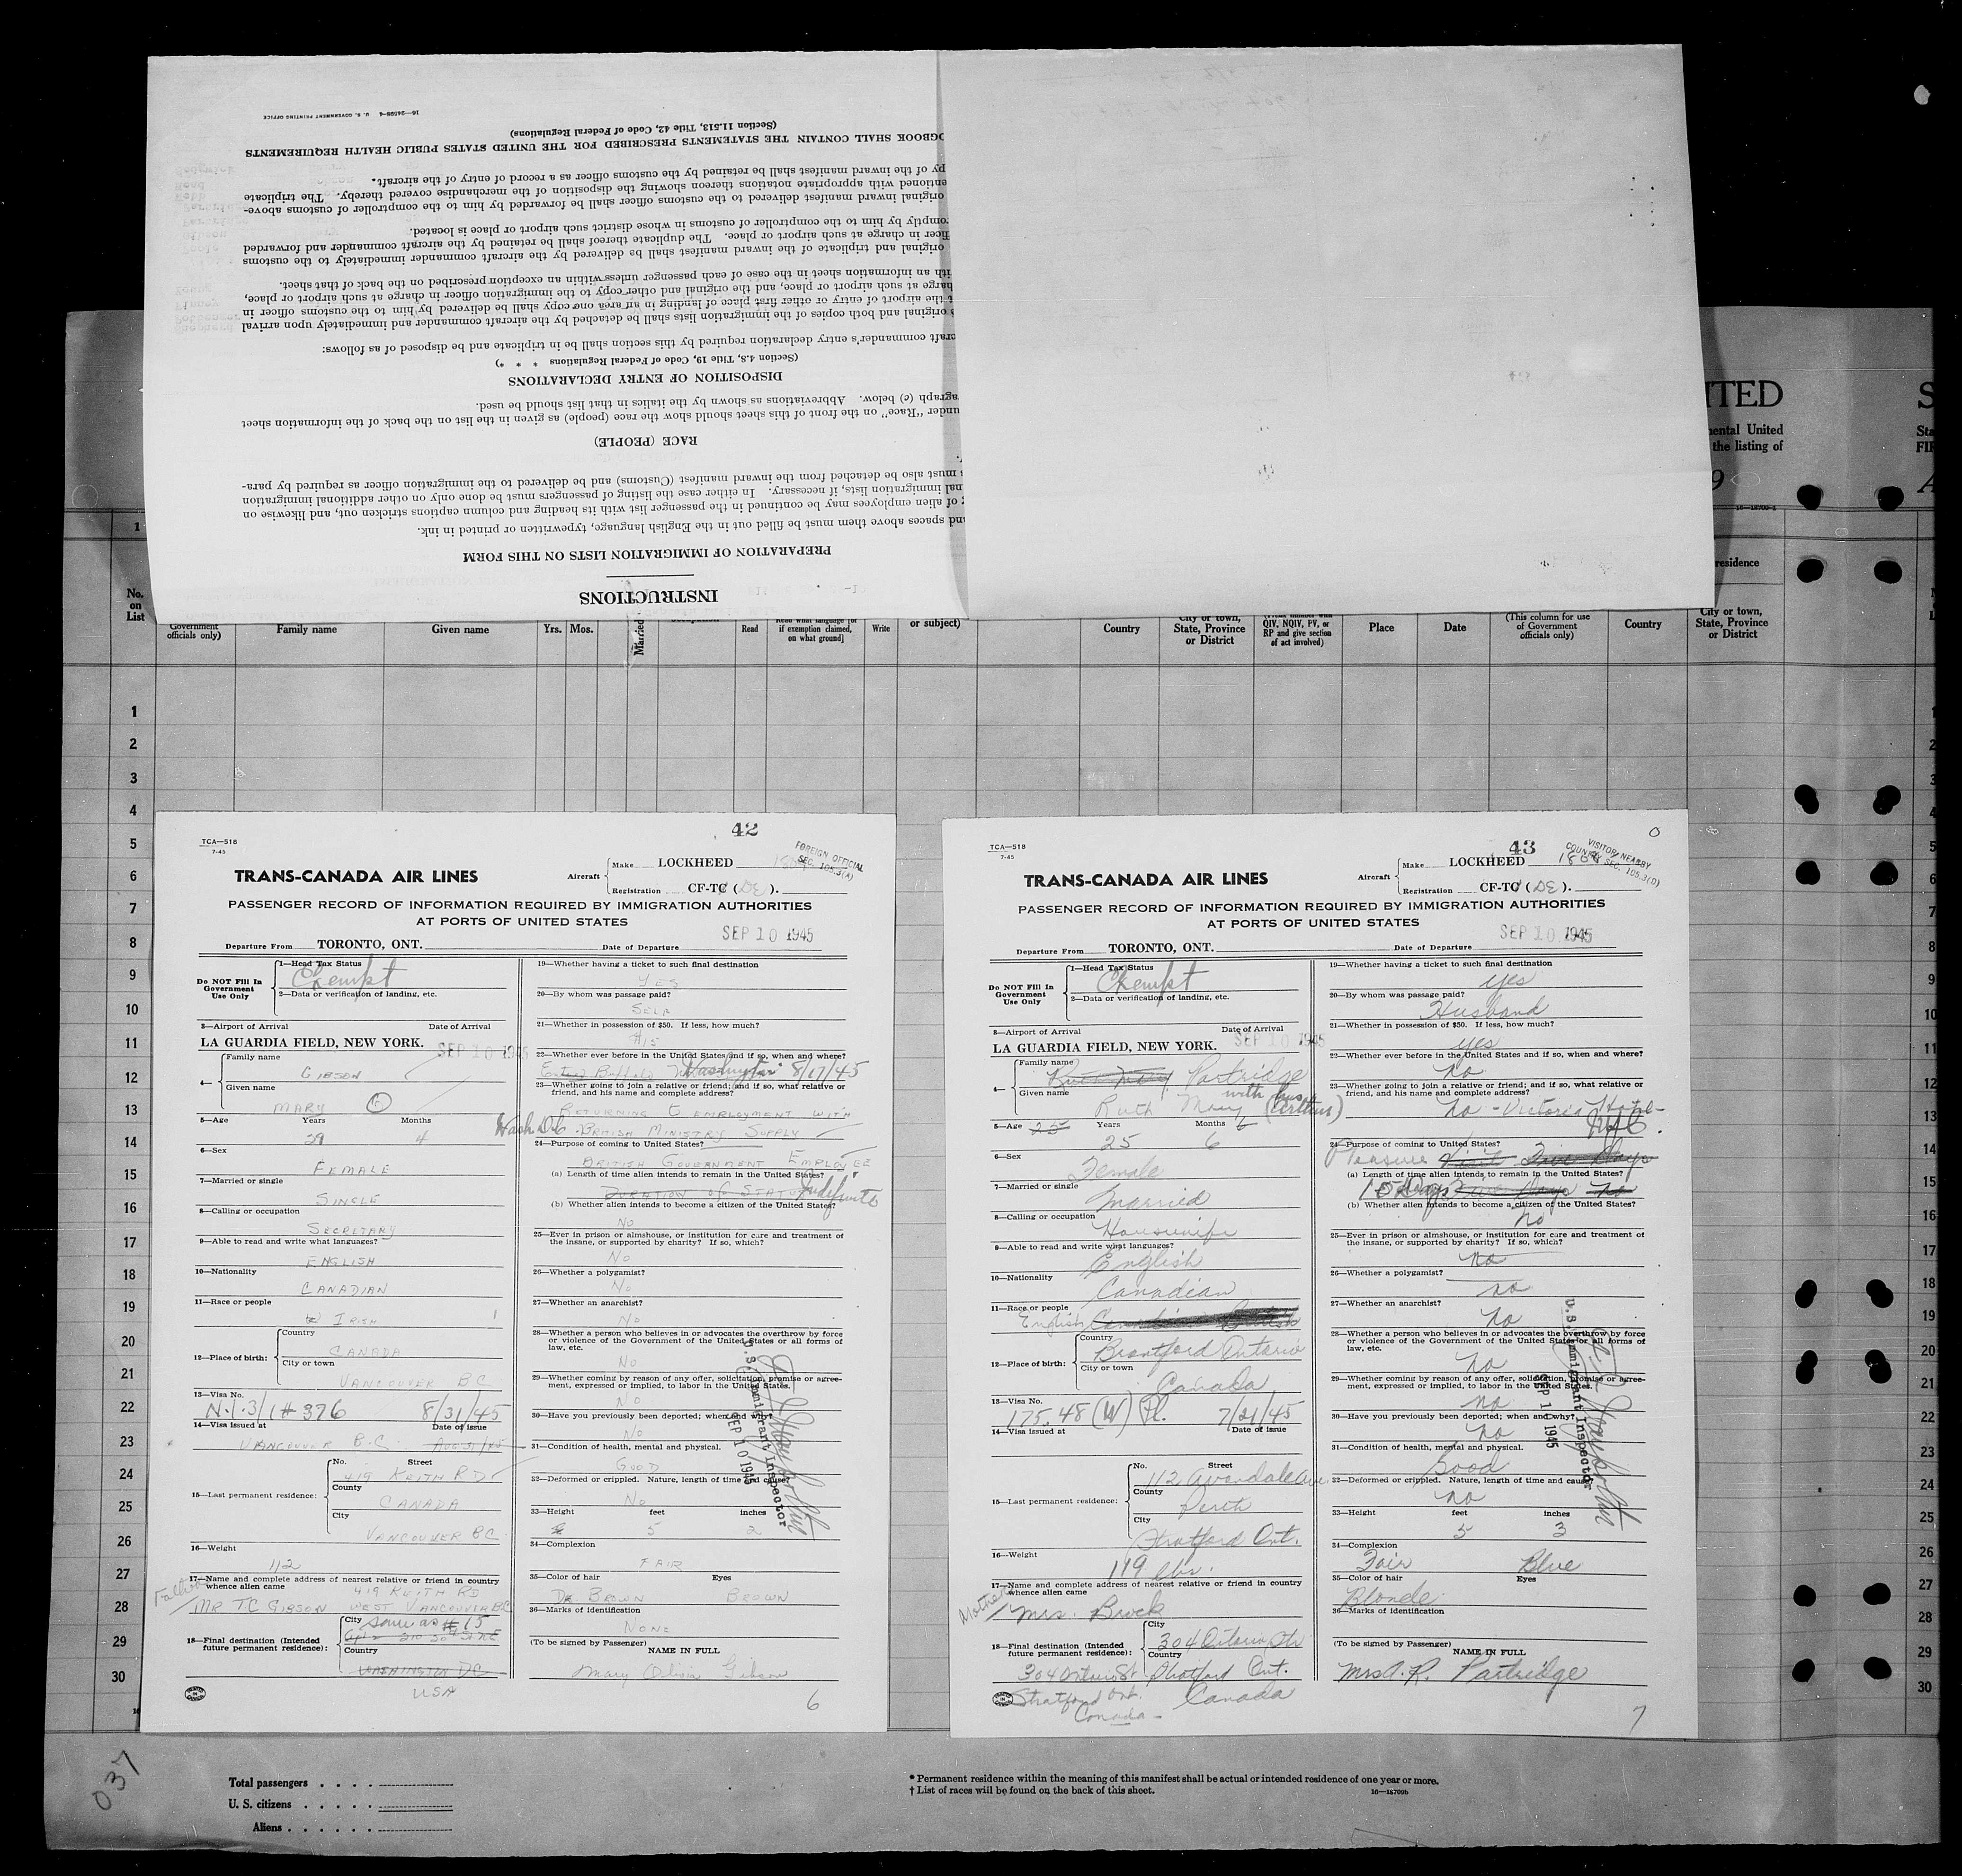 16—24598-4 U. S. GOVERNMENT PRINTING OFFICE
(Section 11.513, Title 42, Code of Federal Regulations)
OGBOOK SHALL CONTAIN THE STATEMENTS PRESCRIBED FOR THE UNITED STATES PUBLIC HEALTH REQUIREMENTS
py of the inward manifest shall be retained by the customs officer as a record of entry of the aircraft.
entioned with appropriate notations thereon showing the disposition of the merchandise covered thereby. The triplicate
original inward manifest delivered to the customs officer shall be forwarded by him to the comptroller of customs above-
omptly by him to the comptroller of customs in whose district such airport or place is located.
ficer in charge at such airport or place. The duplicate thereof shall be retained by the aircraft commander and forwarded
original and triplicate of the inward manifest shall be delivered by the aircraft commander immediately to the customs
ith an information sheet in the case of each passenger unless within an exception prescribed on the back of that sheet.
harge at such airport or place, and the original and other copy to the immigration officer in charge at such airport or place,
t the airport of entry or other first place of landing in an area one copy shall be delivered by him to the customs officer in
original and both copies of the immigration lists shall be detached by the aircraft commander and immediately upon arrival
craft commander's entry declaration required by this section shall be in triplicate and be disposed of as follows:
(Section 4.8, Title 19, Code of Federal Regulations * * *)
DISPOSITION OF ENTRY DECLARATIONS
agraph (c) below. Abbreviations as shown by the italics in that list should be used.
under "Race" on the front of this sheet should show the race (people) as given in the list on the back of the information sheet
RACE (PEOPLE)
must also be detached from the inward manifest (Customs) and be delivered to the immigration officer as required by para-
nal immigration lists, if necessary. In either case the listing of passengers must be done only on other additional immigration
of alien employees may be continued in the passenger list with its heading and column captions stricken out, and likewise on
and spaces above them must be filled out in the English language, typewritten or printed in ink.
PREPARATION OF IMMIGRATION LISTS ON THIS FORM
INSTRUCTIONS
ITED
mental United
the listing of
9
16—18709-1
residence
City or town, State, Province or District
No. on List
Government officials only)
Family name
Given name
Yrs. Mos.
Married
Read
Read what language [or if exemption claimed, on what ground]
Write
or subject)
Country
City or town, State, Province or District
QIV, NQIV, PV, or RP and give section of act involved)
Place
Date
(This column for use of Government officials only)
Country
1
2
3
4
5
6
7
8
9
10
11
12
13
14
15
16
17
18
19
20
21
22
23
24
25
26
27
28
29
30
42
TCA—518
7-45
TRANS-CANADA AIR LINES
Aircraft
Make LOCKHEED
Registration CF-TC (DE).
FOREIGN OFFICIAL
SEC. 105.3(A)
PASSENGER RECORD OF INFORMATION REQUIRED BY IMMIGRATION AUTHORITIES
AT PORTS OF UNITED STATES
Departure From TORONTO, ONT. Date of Departure SEP 10 1945
Do NOT Fill In Government Use Only
1—Head Tax Status
Exempt
2—Data or verification of landing, etc.
3—Airport of Arrival Date of Arrival
LA GUARDIA FIELD, NEW YORK. SEP 10 1945
4—
Family name
GIBSON
Given name
MARY
5—Age Years Months
29 4
6—Sex
FEMALE
7—Married or single
SINGLE
8—Calling or occupation
SECRETARY
9—Able to read and write what languages?
ENGLISH
10—Nationality
CANADIAN
11—Race or people
IRISH
12—Place of birth:
Country
CANADA
City or town
VANCOUVER BC
13—Visa No.
N.I.3/1 # 376 8/31/45
14—Visa issued at Date of issue
VANCOUVER B.C. AUG 31/45
15—Last permanent residence:
No. Street
419 KEITH RD
County
CANADA
City
VANCOUVER BC
16—Weight
112
17—Name and complete address of nearest relative or friend in country whence alien came
Father
419 KEITH RD
MR T.C GIBSON WEST VANCOUVER BC
18—Final destination (Intended future permanent residence):
City
same as # 15
Country
WASHINGTON DC
USA
19—Whether having a ticket to such final destination
YES
20—By whom was passage paid?
SELF
21—Whether in possession of $50. If less, how much?
$15
22—Whether ever before in the United States and if so, when and where?
Washington 8/17/45
23—Whether going to join a relative or friend; and if so, what relative or friend, and his name and complete address?
RETURNING TO EMPLOYMENT WITH
Wash DC BRITISH MINISTRY SUPPLY
24—Purpose of coming to United States?
BRITISH GOVERNMENT EMPLOYEE
(a) Length of time alien intends to remain in the United States?
DURATION OF STATUS Indefinite
(b) Whether alien intends to become a citizen of the United States?
NO
25—Ever in prison or almshouse, or institution for care and treatment of the insane, or supported by charity? If so, which?
NO
26—Whether a polygamist?
NO
27—Whether an anarchist?
NO
28—Whether a person who believes in or advocates the overthrow by force or violence of the Government of the United States or all forms of law, etc.
NO
29—Whether coming by reason of any offer, solicitation, promise or agreement, expressed or implied, to labor in the United States.
NO
30—Have you previously been deported; when and why?
NO
31—Condition of health, mental and physical.
GOOD
32—Deformed or crippled. Nature, length of time and cause?
NO
33—Height feet inches
5 2
34—Complexion
FAIR
35—Color of hair Eyes
DK BROWN BROWN
36—Marks of identification
NONE
(To be signed by Passenger)
NAME IN FULL
Mary Olivia Gibson
U.S. Immigrant Inspector
SEP 10 1945
6
43
TCA—518
7-45
TRANS-CANADA AIR LINES
Aircraft
Make LOCKHEED
Registration CF-TC (DE).
VISITOR/NEARBY
COUNTRY SEC. 105.3(D)
PASSENGER RECORD OF INFORMATION REQUIRED BY IMMIGRATION AUTHORITIES
AT PORTS OF UNITED STATES
Departure From TORONTO, ONT. Date of Departure SEP 10 1945
Do NOT Fill In Government Use Only
1—Head Tax Status
Exempt
2—Data or verification of landing, etc.
3—Airport of Arrival Date of Arrival
LA GUARDIA FIELD, NEW YORK. SEP 10 1945
4—
Family name
Ruth Mary Partridge
Given name with hus.
Ruth Mary (Arthur)
5—Age 25 Years Months 6
25 6
6—Sex
Female
7—Married or single
Married
8—Calling or occupation
Housewife
9—Able to read and write what languages?
English
10—Nationality
Canadian
11—Race or people
English
12—Place of birth:
Country
Brantford Ontario
City or town
Canada
13—Visa No.
175.48 (W) Pl. 7/21/45
14—Visa issued at Date of issue
15—Last permanent residence:
No. Street
112 Avondale Ave
County
Perth
City
Stratford Ont.
16—Weight
119 lbs.
17—Name and complete address of nearest relative or friend in country whence alien came
Mother
Mrs. Brock
18—Final destination (Intended future permanent residence):
City
304 Ontario St.
Country
304 Ontario St Stratford Ont.
Stratford Ont. Canada
Canada
19—Whether having a ticket to such final destination
yes
20—By whom was passage paid?
Husband
21—Whether in possession of $50. If less, how much?
yes
22—Whether ever before in the United States and if so, when and where?
No
23—Whether going to join a relative or friend; and if so, what relative or friend, and his name and complete address?
No - Victoria Hotel-
NYC.
24—Purpose of coming to United States?
Pleasure Visit Five Days
(a) Length of time alien intends to remain in the United States?
15 days Five Days No
(b) Whether alien intends to become a citizen of the United States?
No
25—Ever in prison or almshouse, or institution for care and treatment of the insane, or supported by charity? If so, which?
No
26—Whether a polygamist?
No
27—Whether an anarchist?
No
28—Whether a person who believes in or advocates the overthrow by force or violence of the Government of the United States or all forms of law, etc.
No
29—Whether coming by reason of any offer, solicitation, promise or agreement, expressed or implied, to labor in the United States.
No
30—Have you previously been deported; when and why?
No
31—Condition of health, mental and physical.
Good
32—Deformed or crippled. Nature, length of time and cause?
No
33—Height feet inches
5 3
34—Complexion
Fair Blue
35—Color of hair Eyes
Blonde
36—Marks of identification
(To be signed by Passenger)
NAME IN FULL
Mrs A. R. Partridge
U.S. Immigrant Inspector
SEP 10 1945
7
037
Total passengers
U. S. citizens
Aliens
* Permanent residence within the meaning of this manifest shall be actual or intended residence of one year or more.
† List of races will be found on the back of this sheet.
16—18709b